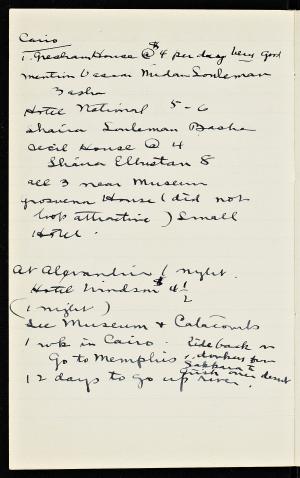 Cairo
1. Gresham House @ $4 per day very good
mention Midan Souleman
Pasha
Hotel National 5-6
Sharia Souleman Basha
Cecil House @ 4
Sharia Elbustan 8
all 3 near Museum
Grosvenor House (did not
look attractive) Small
Hotel.
At Alexandria 1 night.
Hotel Windsor $4 1/2
(1 night)
See Museum & Catacombs
1 wk in Cairo. Ride back on
Go to Memphis donkey from
Sakkara
12 days to go up river. over desert